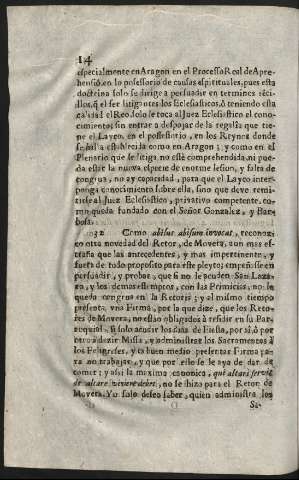 14
especialmente en Aragon en el Processo Real de Apre-
hensiō, en lo possessorio de causas espirituales, pues esta
doctrina solo se dirige a persuadir en terminos sēci-
llos, q̄ el ser litigantes los Eclesiasticos, ò teniendo esta
calidad el Reo, solo se toca al Juez Eclesiastico el cono-
cimiento, sin entrar a despojar de la regalia que tiene
el Layco, en el possessorio, en los Reynos donde
se halla establecida como en Aragon; y como en el
Plenario que se litiga, no estè comprehendida, ni pue-
da estàr la nueva especie de enorme lesion, y falta de
congrua, no ay capacidad, para que el Layco inter-
ponga conocimiento sobre ella, sino que deve remi-
tirse al Juez Eclesiastico, privativo competente, co-
mo queda fundado con el Señor Gonzalez, y Bar-
bosa.
Como abisus abisum invocat, reconoz-
co otra novedad del Retor, de Movera, aun mas es-
traña que las antecedentes, y mas impertinente, y
fuera de todo proposito para este pleyto; empeñase en
persuadir, y probar, que si no le acuden San Laza-
ro, y los demas estempos, con las Primicias, no le
queda congrua en la Retoria; y al mismo tiempo
presenta vna Firma, por la que dize, que los Reto-
res de Movera, no estàn obligados à residir en su Par-
roquial, si solo acudir los dias de Fiesta, por sì, ò por
otro à dezir Missa, y administrar los Sacramentos à
los Feligreses, y es buen medio presentar Firma pa-
ra no trabajar, y que por esto se le aya de dar de
comer; y assi la maxima canonica, qui altari servit
de altare vivere debet, no se hizo para el Retor de
Movera. Yo solo deseo saber, quien administra los
Sa-